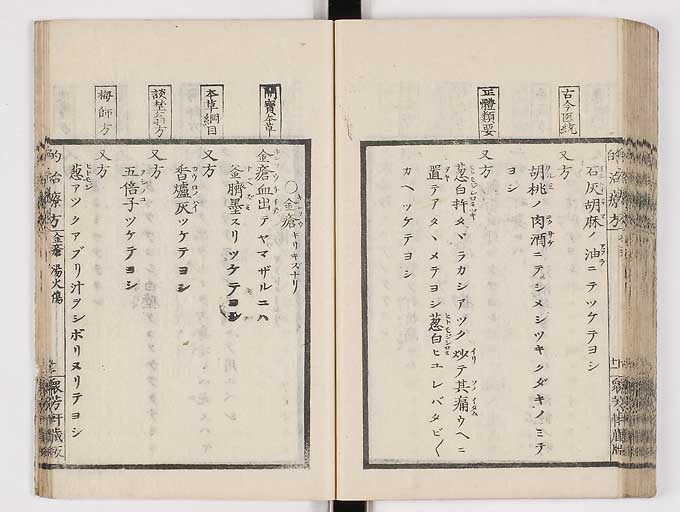 古今医統
正體類要
石灰胡麻ノ油ニテツケテヨシ
又方
胡桃ノ肉酒ニテシメシツキクダキノミテ
ヨシ
又方
葱白杵タヽラカシアツク炒テ其痛ウヘニ
置テアタヽメテヨシ葱白ヒユレバタビ〱
カヘツケテヨシ
開寶本草
本草綱目
談埜翁方
梅師方
○金瘡キリキズナリ
金瘡血出テヤマザルニハ
釜臍墨スリツケテヨシ
又方
香爐灰ツケテヨシ
又方
五倍子ツケテヨシ
又方
葱アツクアブリ汁ヲシボリヌリテヨシ
的治療方 金瘡 湯火傷